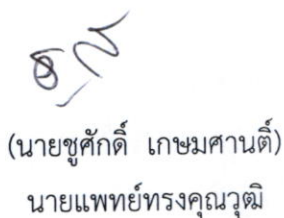 (นายชูศักดิ์ เกษมศานติ์)
นายแพทย์ทรงคุณวุฒิ